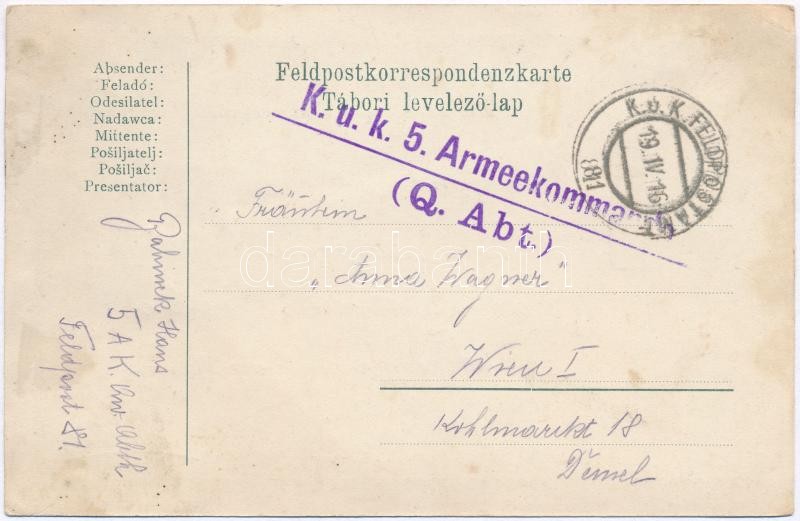 Absender:
Feladó:
Odesilatel:
Nadawca:
Mittente:
Pošiljatelj:
Pošiljač:
Presentator:
Feldpostkorrespondenzkarte
Tábori levelező-lap
K. u. k. 5. Armeekommando
(Q. Abt.)
K.u.K. FELDPOSTAMT
19. IV. 16
Fräulein
„Anna Wagner"
Wien I
Kohlmarkt 18
Demel
Hans
5 A K. Abth
Feldpost 81.
darabanth